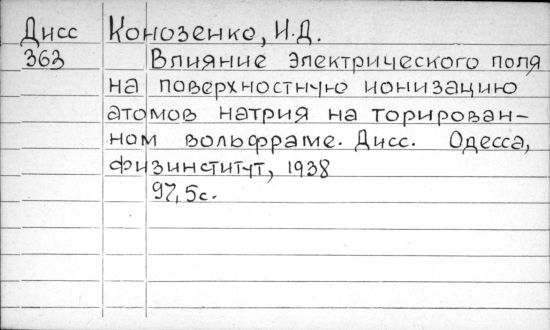 Дисс Конозенко, И.Д.
363 Влияние электрического поля
на поверхностную ионизацию
атомов натрия на торирован-
ном вольфраме. Дисс. Одесса,
физинститут, 1938
97,5с.